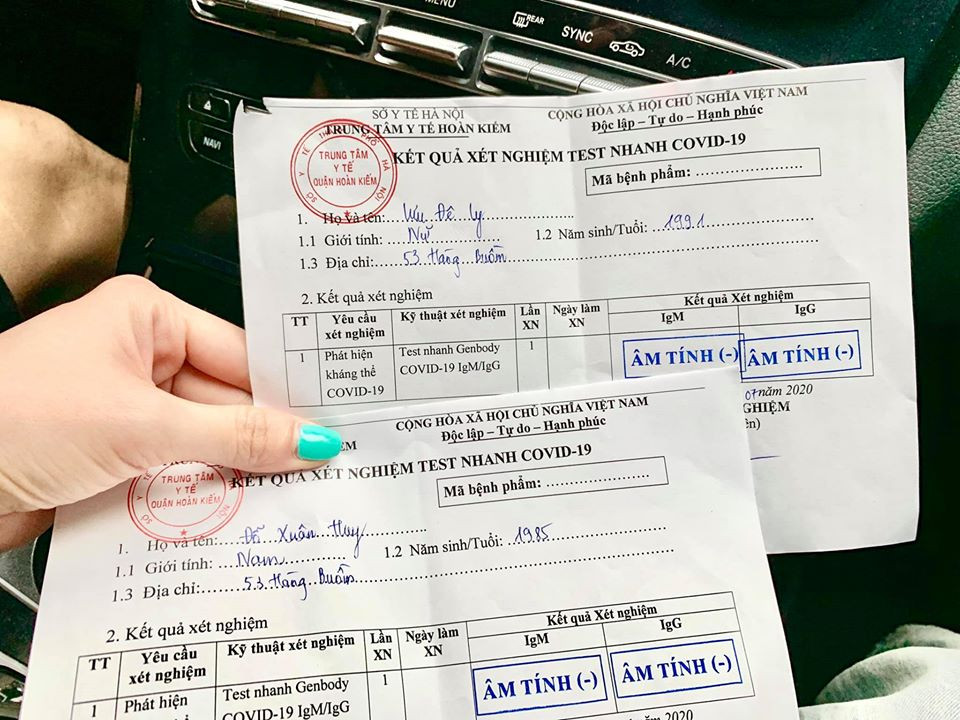 MENU
REAR
SYNC
A/C
NAVI
SỞ Y TẾ HÀ NỘI
TRUNG TÂM Y TẾ HOÀN KIẾM
CỘNG HÒA XÃ HỘI CHỦ NGHĨA VIỆT NAM
Độc lập – Tự do – Hạnh phúc
TRUNG TÂM
Y TẾ
QUẬN HOÀN KIẾM
KẾT QUẢ XÉT NGHIỆM TEST NHANH COVID-19
Mã bệnh phẩm: ........................
1. Họ và tên: Đê Ly
1.1 Giới tính: Nữ 1.2 Năm sinh/Tuổi: 1991
1.3 Địa chỉ: 53 Hàng Buồm
2. Kết quả xét nghiệm
TT Yêu cầu xét nghiệm Kỹ thuật xét nghiệm Lần XN Ngày làm XN Kết quả Xét nghiệm
IgM IgG
1 Phát hiện kháng thể COVID-19 Test nhanh Genbody COVID-19 IgM/IgG 1 ÂM TÍNH (-) ÂM TÍNH (-)
07 năm 2020
GHIỆM
ên)
CỘNG HÒA XÃ HỘI CHỦ NGHĨA VIỆT NAM
Độc lập – Tự do – Hạnh phúc
TRUNG TÂM
Y TẾ
QUẬN HOÀN KIẾM
KẾT QUẢ XÉT NGHIỆM TEST NHANH COVID-19
Mã bệnh phẩm: ........................
1. Họ và tên: Đỗ Xuân Huy
1.1 Giới tính: Nam 1.2 Năm sinh/Tuổi: 1985
1.3 Địa chỉ: 53 Hàng Buồm
2. Kết quả xét nghiệm
TT Yêu cầu xét nghiệm Kỹ thuật xét nghiệm Lần XN Ngày làm XN Kết quả Xét nghiệm
IgM IgG
1 Phát hiện Test nhanh Genbody COVID-19 IgM/IgG 1 ÂM TÍNH (-) ÂM TÍNH (-)
năm 2020